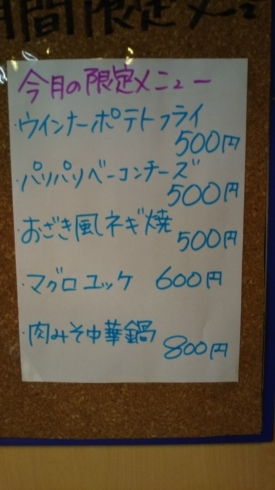 期間限定メニュ
今月の限定メニュー
・ウインナーポテトフライ
500円
・パリパリベーコンチーズ
500円
・おざき風ネギ焼
500円
・マグロユッケ 600円
・肉みそ中華鍋
800円